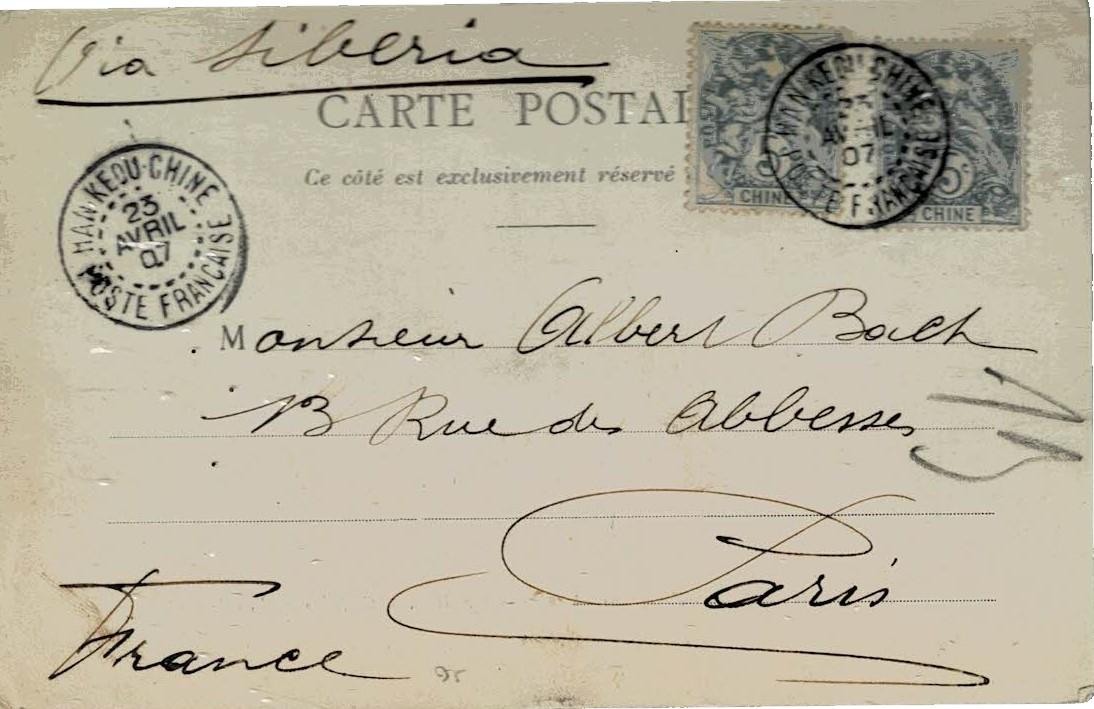 Via Siberia
CARTE POSTAL
Ce côté est exclusivement réservé
HANKEOU-CHINE
23
AVRIL
07
POSTE FRANCAISE
HANKEOU CHINE
23
AVRIL
07
POSTE FRANCAISE
CHINE
5c
CHINE
Monsieur Albert Bach
13 Rue des Abbesses
Paris
France